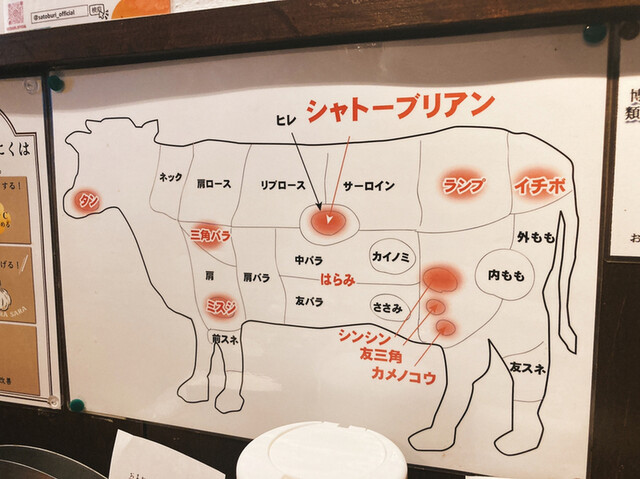 @satoburi_official
検索
シャトーブリアン
ヒレ
ネック
肩ロース
リブロース
サーロイン
ランプ
イチボ
タン
三角バラ
中バラ
カイノミ
外もも
内もも
はらみ
肩
肩バラ
ミスジ
友バラ
ささみ
前スネ
シンシン
友三角
カメノコウ
友スネ
にくは
する！
げる！
改善
博
類